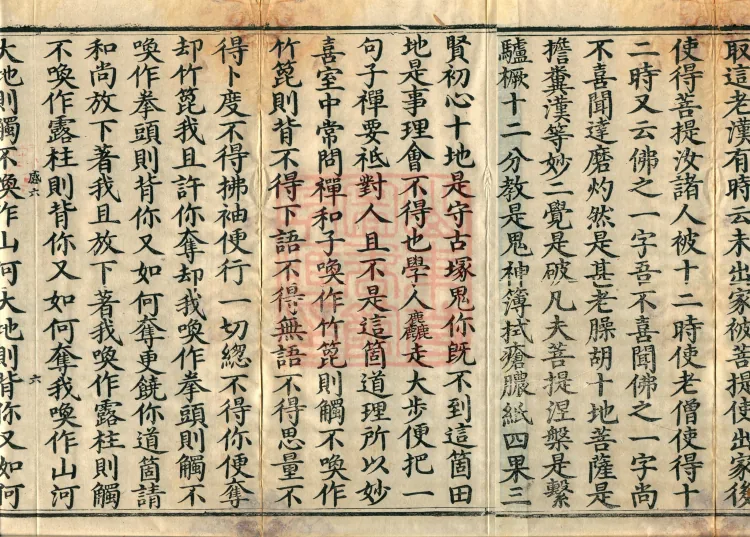 取這老漢有時云未出家被菩提使出家後
使得菩提汝諸人被十二時使老僧使得十
二時又云佛之一字吾不喜聞佛之一字尚
不喜聞達磨灼然是甚老臊胡十地菩薩是
擔糞漢等妙二覺是破凡夫菩提涅槃是繫
驢橛十二分教是鬼神簿拭瘡膿紙四果三
賢初心十地是守古塚鬼你旣不到這箇田
地是事理會不得也學人麤走大步便把一
句子禪要祗對人且不是這箇道理所以妙
喜室中常問禪和子喚作竹篦則觸不喚作
竹篦則背不得下語不得無語不得思量不
得卜度不得拂袖便行一切總不得你便奪
却竹篦我且許你奪却我喚作拳頭則觸不
喚作拳頭則背你又如何奪更饒你道箇請
和尚放下著我且放下著我喚作露柱則觸
不喚作露柱則背你又如何奪我喚作山河
大地則觸不喚作山河大地則背你又如何
六
六